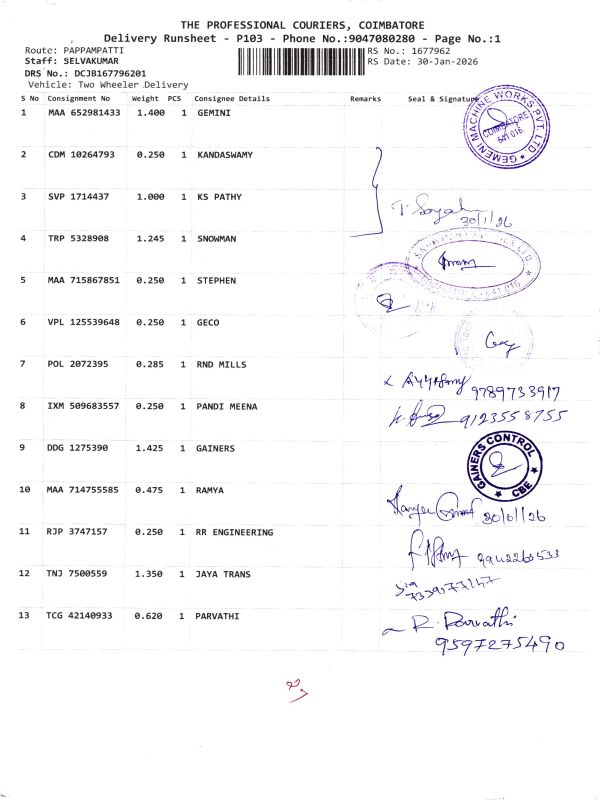 THE PROFESSIONAL COURIERS, COIMBATORE
Delivery Runsheet - P103 - Phone No.:9047080280 - Page No.:1
Route: PAPPAMPATTI RS No.: 1677962
Staff: SELVAKUMAR RS Date: 30-Jan-2026
DRS No.: DCJB167796201
Vehicle: Two Wheeler Delivery
S No Consignment No Weight PCS Consignee Details Remarks Seal & Signature
1 MAA 652981433 1.400 1 GEMINI
GEMENI MACHINE WORKS PVT. LTD
COIMBATORE
641 016
2 CDM 10264793 0.250 1 KANDASWAMY
3 SVP 1714437 1.000 1 KS PATHY
30/1/26
4 TRP 5328908 1.245 1 SNOWMAN
5 MAA 715867851 0.250 1 STEPHEN
6 VPL 125539648 0.250 1 GECO
7 POL 2072395 0.285 1 RND MILLS
9789733917
8 IXM 509683557 0.250 1 PANDI MEENA
9123558755
9 DDG 1275390 1.425 1 GAINERS
GAINERS CONTROL
CBE
10 MAA 714755585 0.475 1 RAMYA
11 RJP 3747157 0.250 1 RR ENGINEERING
12 TNJ 7500559 1.350 1 JAYA TRANS
13 TCG 42140933 0.620 1 PARVATHI
R. Parvathi
9597275490